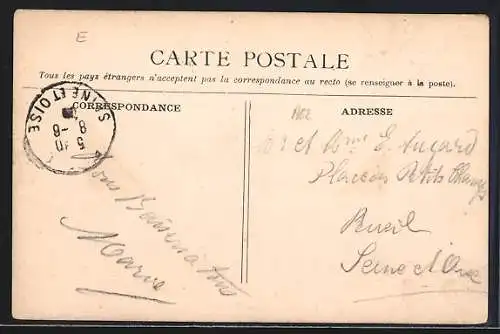 E
CARTE POSTALE
Tous les pays étrangers n'acceptent pas la correspondance au recto (se renseigner à la poste).
CORRESPONDANCE
SEINE ET OISE
8 -8
5
Bons Baisers à tous
Marie
ADRESSE
et Mme E.
Place des Petits Champs
Rueil
Seine et Oise